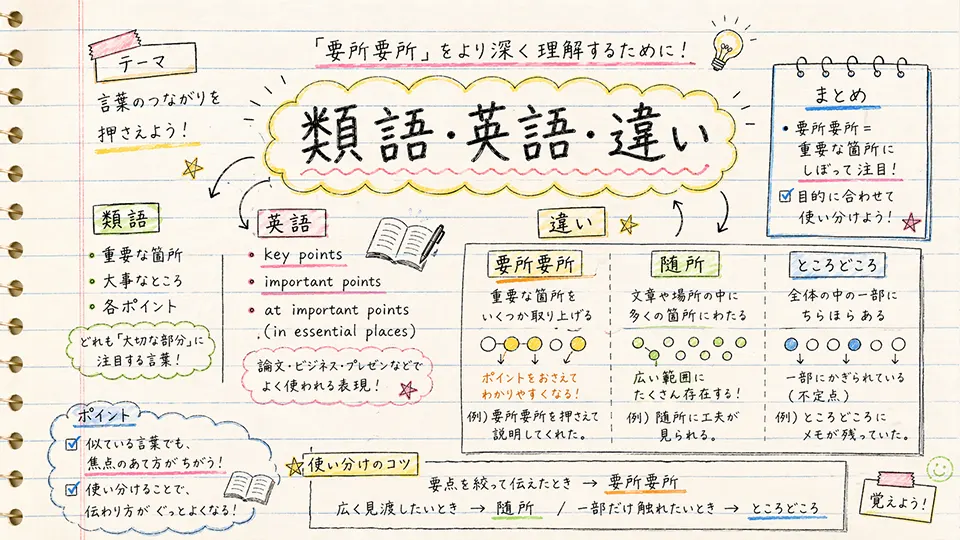 「要所要所」をより深く理解するために!
テーマ
言葉のつながりを
押さえよう!
類語・英語・違い
まとめ
• 要所要所=
重要な箇所に
しぼって注目!
☑ 目的に合わせて
使い分けよう!
類語
• 重要な箇所
• 大事なところ
• 各ポイント
どれも「大切な部分」に
注目する言葉!
英語
• key points
• important points
• at important points
(in essential places)
論文・ビジネス・プレゼンなどで
よく使われる表現!
違い
要所要所
重要な箇所を
いくつか取り上げる
ポイントをおさえて
わかりやすくなる!
例)要所要所を押さえて
説明してくれた。
随所
文章や場所の中に
多くの箇所にわたる
広い範囲に
たくさん存在する!
例)随所に工夫が
見られる。
ところどころ
全体の中の一部に
ちらほらある
一部にかぎられている
(不定点)
例)ところどころに
メモが残っていた。
ポイント
☑ 似ている言葉でも、
焦点のあて方がちがう!
☑ 使い分けることで、
伝わり方がぐっとよくなる!
使い分けのコツ
要点を絞って伝えたとき → 要所要所
広く見渡したいとき → 随所 / 一部だけ触れたいとき → ところどころ
覚えよう!